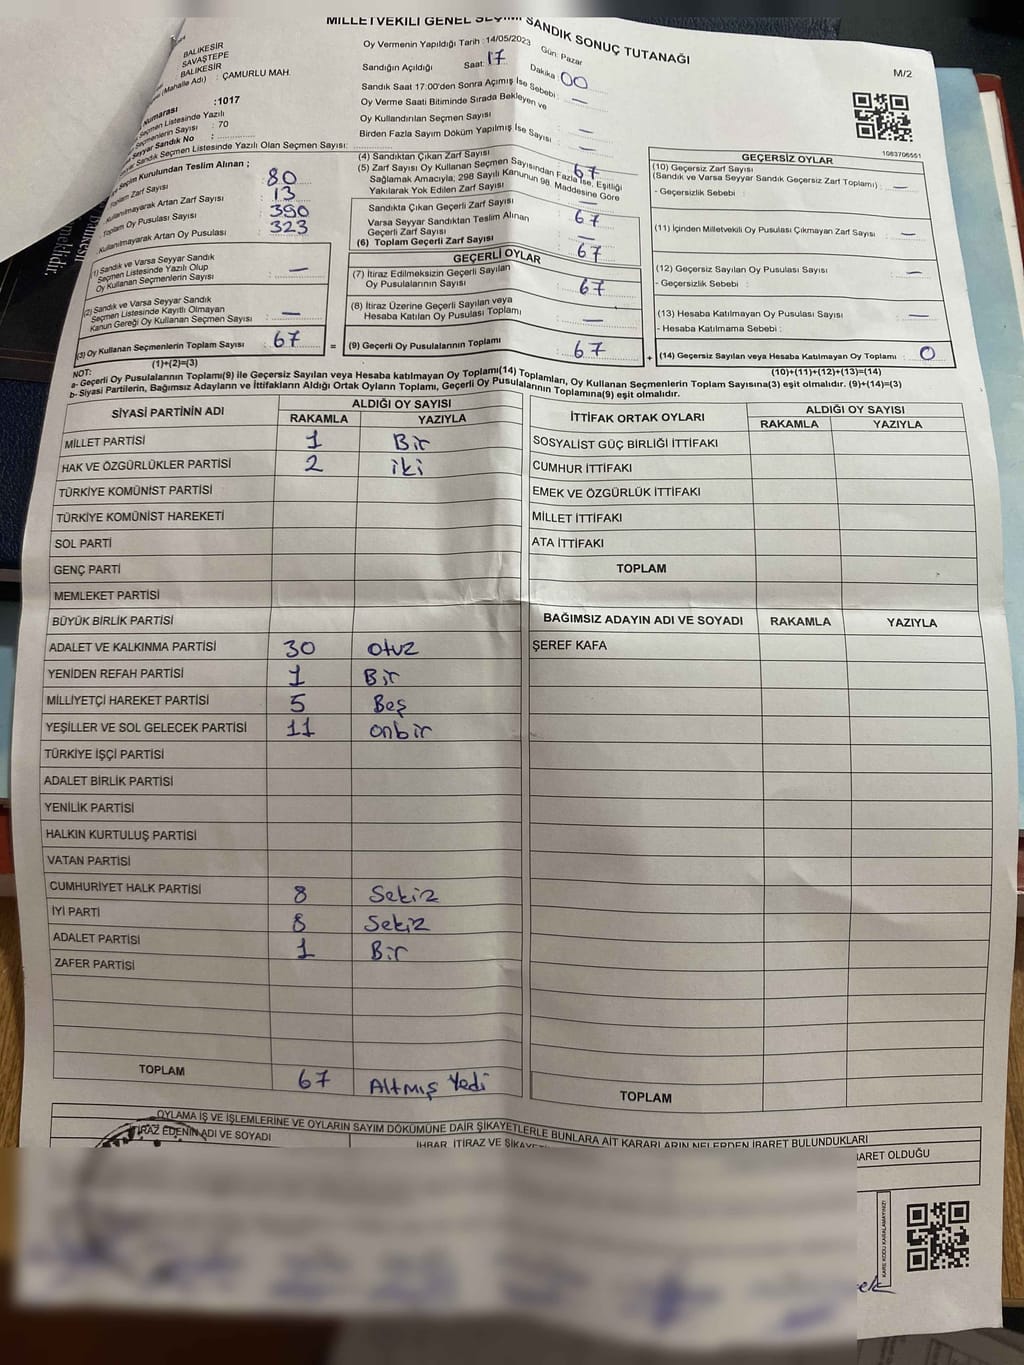 MİLLETVEKİLİ GENEL SEÇİMİ SANDIK SONUÇ TUTANAĞI
M/2
BALIKESİR
SAVAŞTEPE
BALIKESİR
(Mahalle Adı) : ÇAMURLU MAH.
Numarası :1017
Seçmen Listesinde Yazılı
Seçmenlerin Sayısı : 70
Seyyar Sandık No :
Seyyar Sandık Seçmen Listesinde Yazılı Olan Seçmen Sayısı:
Oy Vermenin Yapıldığı Tarih :14/05/2023 Gün: Pazar
Sandığın Açıldığı Saat: 17 Dakika : 00
Sandık Saat 17:00'den Sonra Açımış İse Sebebi : —
Oy Verme Saati Bitiminde Sırada Bekleyen ve
Oy Kullandırılan Seçmen Sayısı —
Birden Fazla Sayım Döküm Yapılmış İse Sayısı —
Seçim Kurulundan Teslim Alınan ;
Toplam Zarf Sayısı 80
Kullanılmayarak Artan Zarf Sayısı 13
Toplam Oy Pusulası Sayısı 390
Kullanılmayarak Artan Oy Pusulası 323
(1) Sandık ve Varsa Seyyar Sandık
Seçmen Listesinde Yazılı Olup
Oy Kullanan Seçmenlerin Sayısı —
(2) Sandık ve Varsa Seyyar Sandık
Seçmen Listesinde Kayıtlı Olmayan
Kanun Gereği Oy Kullanan Seçmen Sayısı —
(3) Oy Kullanan Seçmenlerin Toplam Sayısı 67
(1)+(2)=(3)
(4) Sandıktan Çıkan Zarf Sayısı 67
(5) Zarf Sayısı Oy Kullanan Seçmen Sayısından Fazla İse, Eşitliği
Sağlamak Amacıyla, 298 Sayılı Kanunun 98. Maddesine Göre
Yakılarak Yok Edilen Zarf Sayısı —
Sandıkta Çıkan Geçerli Zarf Sayısı 67
Varsa Seyyar Sandıktan Teslim Alınan
Geçerli Zarf Sayısı —
(6) Toplam Geçerli Zarf Sayısı 67
GEÇERLİ OYLAR
(7) İtiraz Edilmeksizin Geçerli Sayılan
Oy Pusulalarının Sayısı 67
(8) İtiraz Üzerine Geçerli Sayılan veya
Hesaba Katılan Oy Pusulası Toplamı —
= (9) Geçerli Oy Pusulalarının Toplamı 67
1063706551
GEÇERSİZ OYLAR
(10) Geçersiz Zarf Sayısı
(Sandık ve Varsa Seyyar Sandık Geçersiz Zarf Toplamı) : —
- Geçersizlik Sebebi :
(11) İçinden Milletvekili Oy Pusulası Çıkmayan Zarf Sayısı : —
(12) Geçersiz Sayılan Oy Pusulası Sayısı : —
- Geçersizlik Sebebi :
(13) Hesaba Katılmayan Oy Pusulası Sayısı : —
- Hesaba Katılmama Sebebi :
+ (14) Geçersiz Sayılan veya Hesaba Katılmayan Oy Toplamı : 0
(10)+(11)+(12)+(13)=(14)
NOT:
a- Geçerli Oy Pusulalarının Toplamı(9) ile Geçersiz Sayılan veya Hesaba katılmayan Oy Toplamı(14) Toplamları, Oy Kullanan Seçmenlerin Toplam Sayısına(3) eşit olmalıdır. (9)+(14)=(3)
b- Siyasi Partilerin, Bağımsız Adayların ve İttifakların Aldığı Ortak Oyların Toplamı, Geçerli Oy Pusulalarının Toplamına(9) eşit olmalıdır.
SİYASİ PARTİNİN ADI ALDIĞI OY SAYISI
RAKAMLA YAZIYLA
MİLLET PARTİSİ 1 Bir
HAK VE ÖZGÜRLÜKLER PARTİSİ 2 iki
TÜRKİYE KOMÜNİST PARTİSİ
TÜRKİYE KOMÜNİST HAREKETİ
SOL PARTİ
GENÇ PARTİ
MEMLEKET PARTİSİ
BÜYÜK BİRLİK PARTİSİ
ADALET VE KALKINMA PARTİSİ 30 otuz
YENİDEN REFAH PARTİSİ 1 Bir
MİLLİYETÇİ HAREKET PARTİSİ 5 Beş
YEŞİLLER VE SOL GELECEK PARTİSİ 11 onbir
TÜRKİYE İŞÇİ PARTİSİ
ADALET BİRLİK PARTİSİ
YENİLİK PARTİSİ
HALKIN KURTULUŞ PARTİSİ
VATAN PARTİSİ
CUMHURİYET HALK PARTİSİ 8 Sekiz
İYİ PARTİ 8 Sekiz
ADALET PARTİSİ 1 Bir
ZAFER PARTİSİ
TOPLAM 67 Altmış Yedi
İTTİFAK ORTAK OYLARI ALDIĞI OY SAYISI
RAKAMLA YAZIYLA
SOSYALİST GÜÇ BİRLİĞİ İTTİFAKI
CUMHUR İTTİFAKI
EMEK VE ÖZGÜRLÜK İTTİFAKI
MİLLET İTTİFAKI
ATA İTTİFAKI
TOPLAM
BAĞIMSIZ ADAYIN ADI VE SOYADI RAKAMLA YAZIYLA
ŞEREF KAFA
TOPLAM
OYLAMA İŞ VE İŞLEMLERİNE VE OYLARIN SAYIM DÖKÜMÜNE DAİR ŞİKAYETLERLE BUNLARA AİT KARARLARIN NELERDEN İBARET BULUNDUKLARI
İTİRAZ EDENİN ADI VE SOYADI
İHBAR, İTİRAZ VE ŞİKAYET
BARET OLDUĞU
KARE KODU KARALAMAYINIZ!